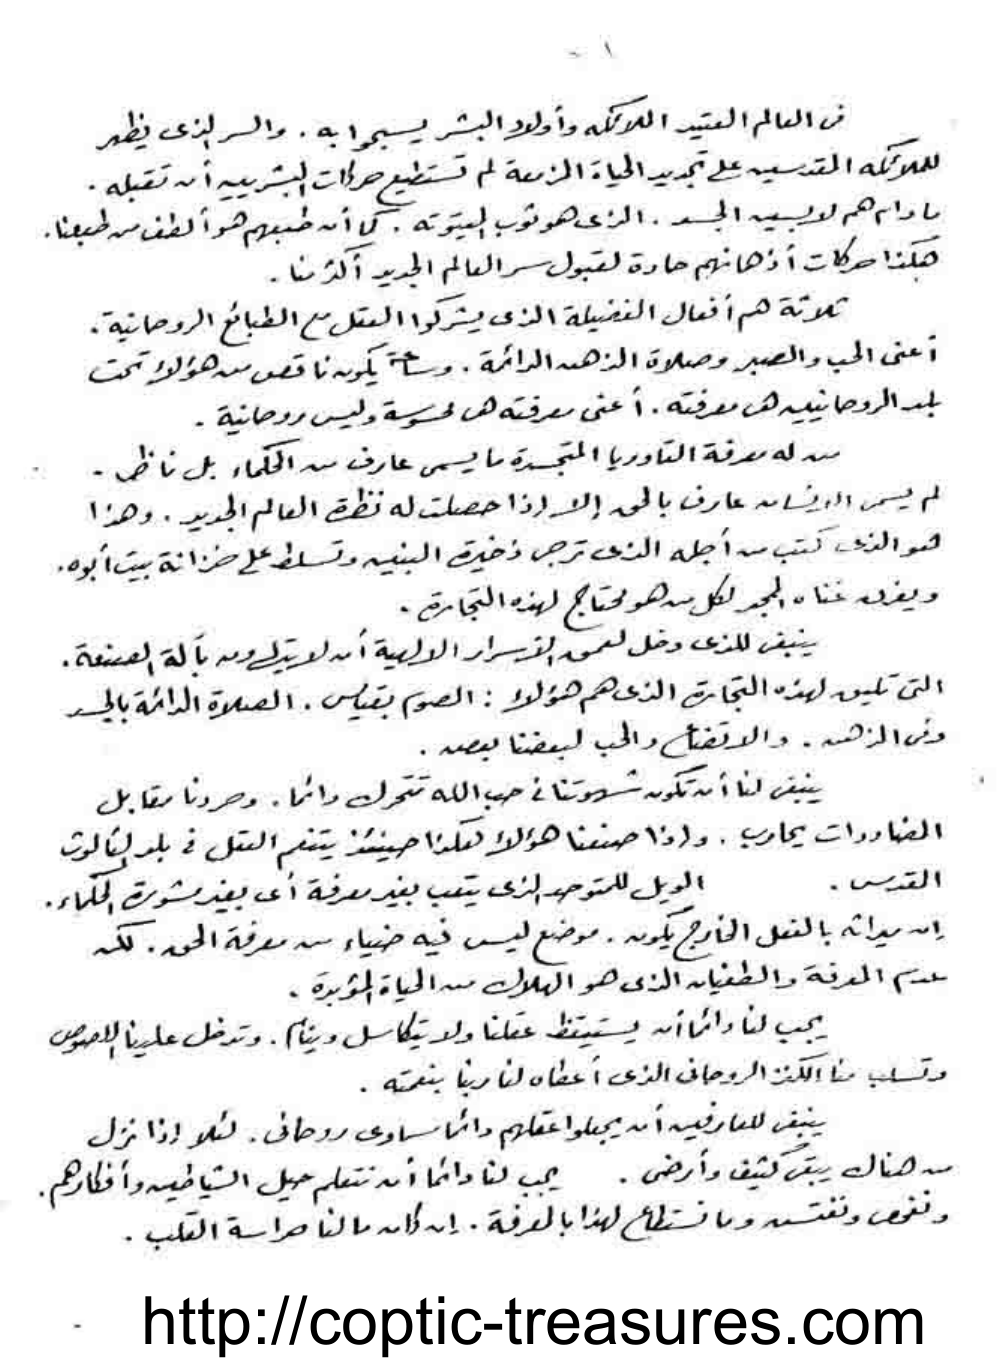 - ١
فى العالم العتيد الملائكه وأولاد البشر يسبحوا به . والسر الذى يظهر
للملائكه المقدسين على تجديد الحياة المزمعة لم تستطيع حركات البشريين أن تقبله .
ما دام هم لابسين الجسد . الذى هو ثوب الميتوته . كما أن طبعهم هو ألطف من طبعنا .
هكذا حركات أذهانهم حادة لقبول سر العالم الجديد أكثر منا .
ثلاثة هم أفعال الفضيلة الذى يشركوا العقل مع الطبائع الروحانية .
أعنى الحب والصبر وصلاة الذهن الدائمة . و يكون ناقص من هؤلاء تحت
بلد الروحانيين هى معرفته . أعنى معرفته هى محسوسة وليس روحانية .
من له معرفة التاوريا المتجسدة ما يسمى عارف من الحكماء بل ناظر .
لم يسمى الإنسان عارف بالحق إلا إذا حصلت له نظرة العالم الجديد . وهذا
هو الذى كتب من أجله الذى ترجى ذخيرة البنين وتسلط على خزانة بيت أبوه .
ويفرق غناه الممجد لكل من هو محتاج لهذه التجارة .
ينبغى للذى دخل لعمق الأسرار الالهية أن لا يترك من يده آلة الصنعة .
التى تليق لهذه التجارة الذى هم هؤلاء : الصوم بقياس . الصلاة الدائمة بالجسد
وفى الذهن . والاتضاع والحب لبعضنا بعض .
ينبغى لنا أن تكون شهوتنا فى حب الله تتحرك دائما . وحردنا مقابل
المضادات يحارب . وإذا صنعنا هؤلاء هكذا حينئذ يتنعم العقل فى بلد الثالوث
القدس . الويل للمتوحد الذى يتعب بغير معرفة أى بغير مشورة الحكماء .
إن ميراثه بالفعل الخارج يكون . موضع ليس فيه ضياء من معرفة الحق . لكن
عدم المعرفة والطغيان الذى هو الهلاك من الحياة المؤبدة .
يجب لنا دائما أن يستيقظ عقلنا ولا يتكاسل وينام . وتدخل علينا اللصوص
وتسلب منا الكنز الروحانى الذى أعطاه لنا ربنا بنعمته .
ينبغى للعارفين أن يجعلوا عقلهم دائما سماوى روحانى . لئلا إذا نزل
من هناك يبقى كثيف وأرضى . يجب لنا دائما أن نتعلم حيل الشياطين وأفكارهم .
ونفحص ونفتش وما نستطاع لهذا بالمعرفة . إن كان ما لنا حراسة القلب .
http://coptic-treasures.com